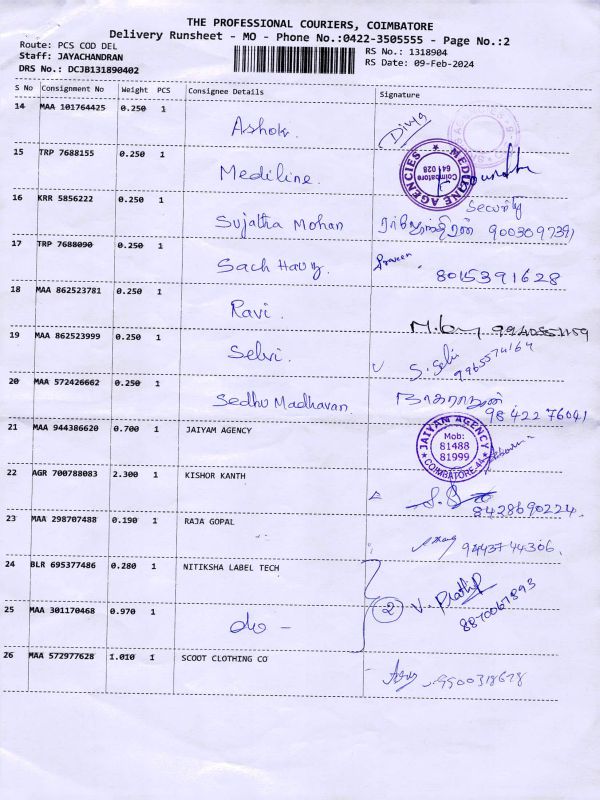 THE PROFESSIONAL COURIERS, COIMBATORE
Delivery Runsheet - MO - Phone No.:0422-3505555 - Page No.:2
Route: PCS COD DEL
RS No.: 1318904
Staff: JAYACHANDRAN
RS Date: 09-Feb-2024
DRS No.: DCJB131890402
S No Consignment No Weight PCS Consignee Details Signature
14 MAA 101764425 0.250 1 Ashok. Divya
15 TRP 7688155 0.250 1 Mediline.
MEDILINE AGENCIES
Coimbatore
641 028
16 KRR 5856222 0.250 1 Sujatha Mohan Security
9003097391
17 TRP 7688090 0.250 1 Praveen
8015391628
18 MAA 862523781 0.250 1 Ravi.
19 MAA 862523999 0.250 1 Selvi. S. Selvi
9965574164
20 MAA 572426662 0.250 1 Sedhu Madhavan.
98422 76041
21 MAA 944386620 0.700 1 JAIYAM AGENCY
JAIYAM AGENCY
Mob:
81488
81999
COIMBATORE-44
22 AGR 700788083 2.300 1 KISHOR KANTH
8428690224.
23 MAA 298707488 0.190 1 RAJA GOPAL
9443744306.
24 BLR 695377486 0.280 1 NITIKSHA LABEL TECH
25 MAA 301170468 0.970 1 do - 2 V. Prathip
8870067893
26 MAA 572977628 1.010 1 SCOOT CLOTHING CO
9900318678